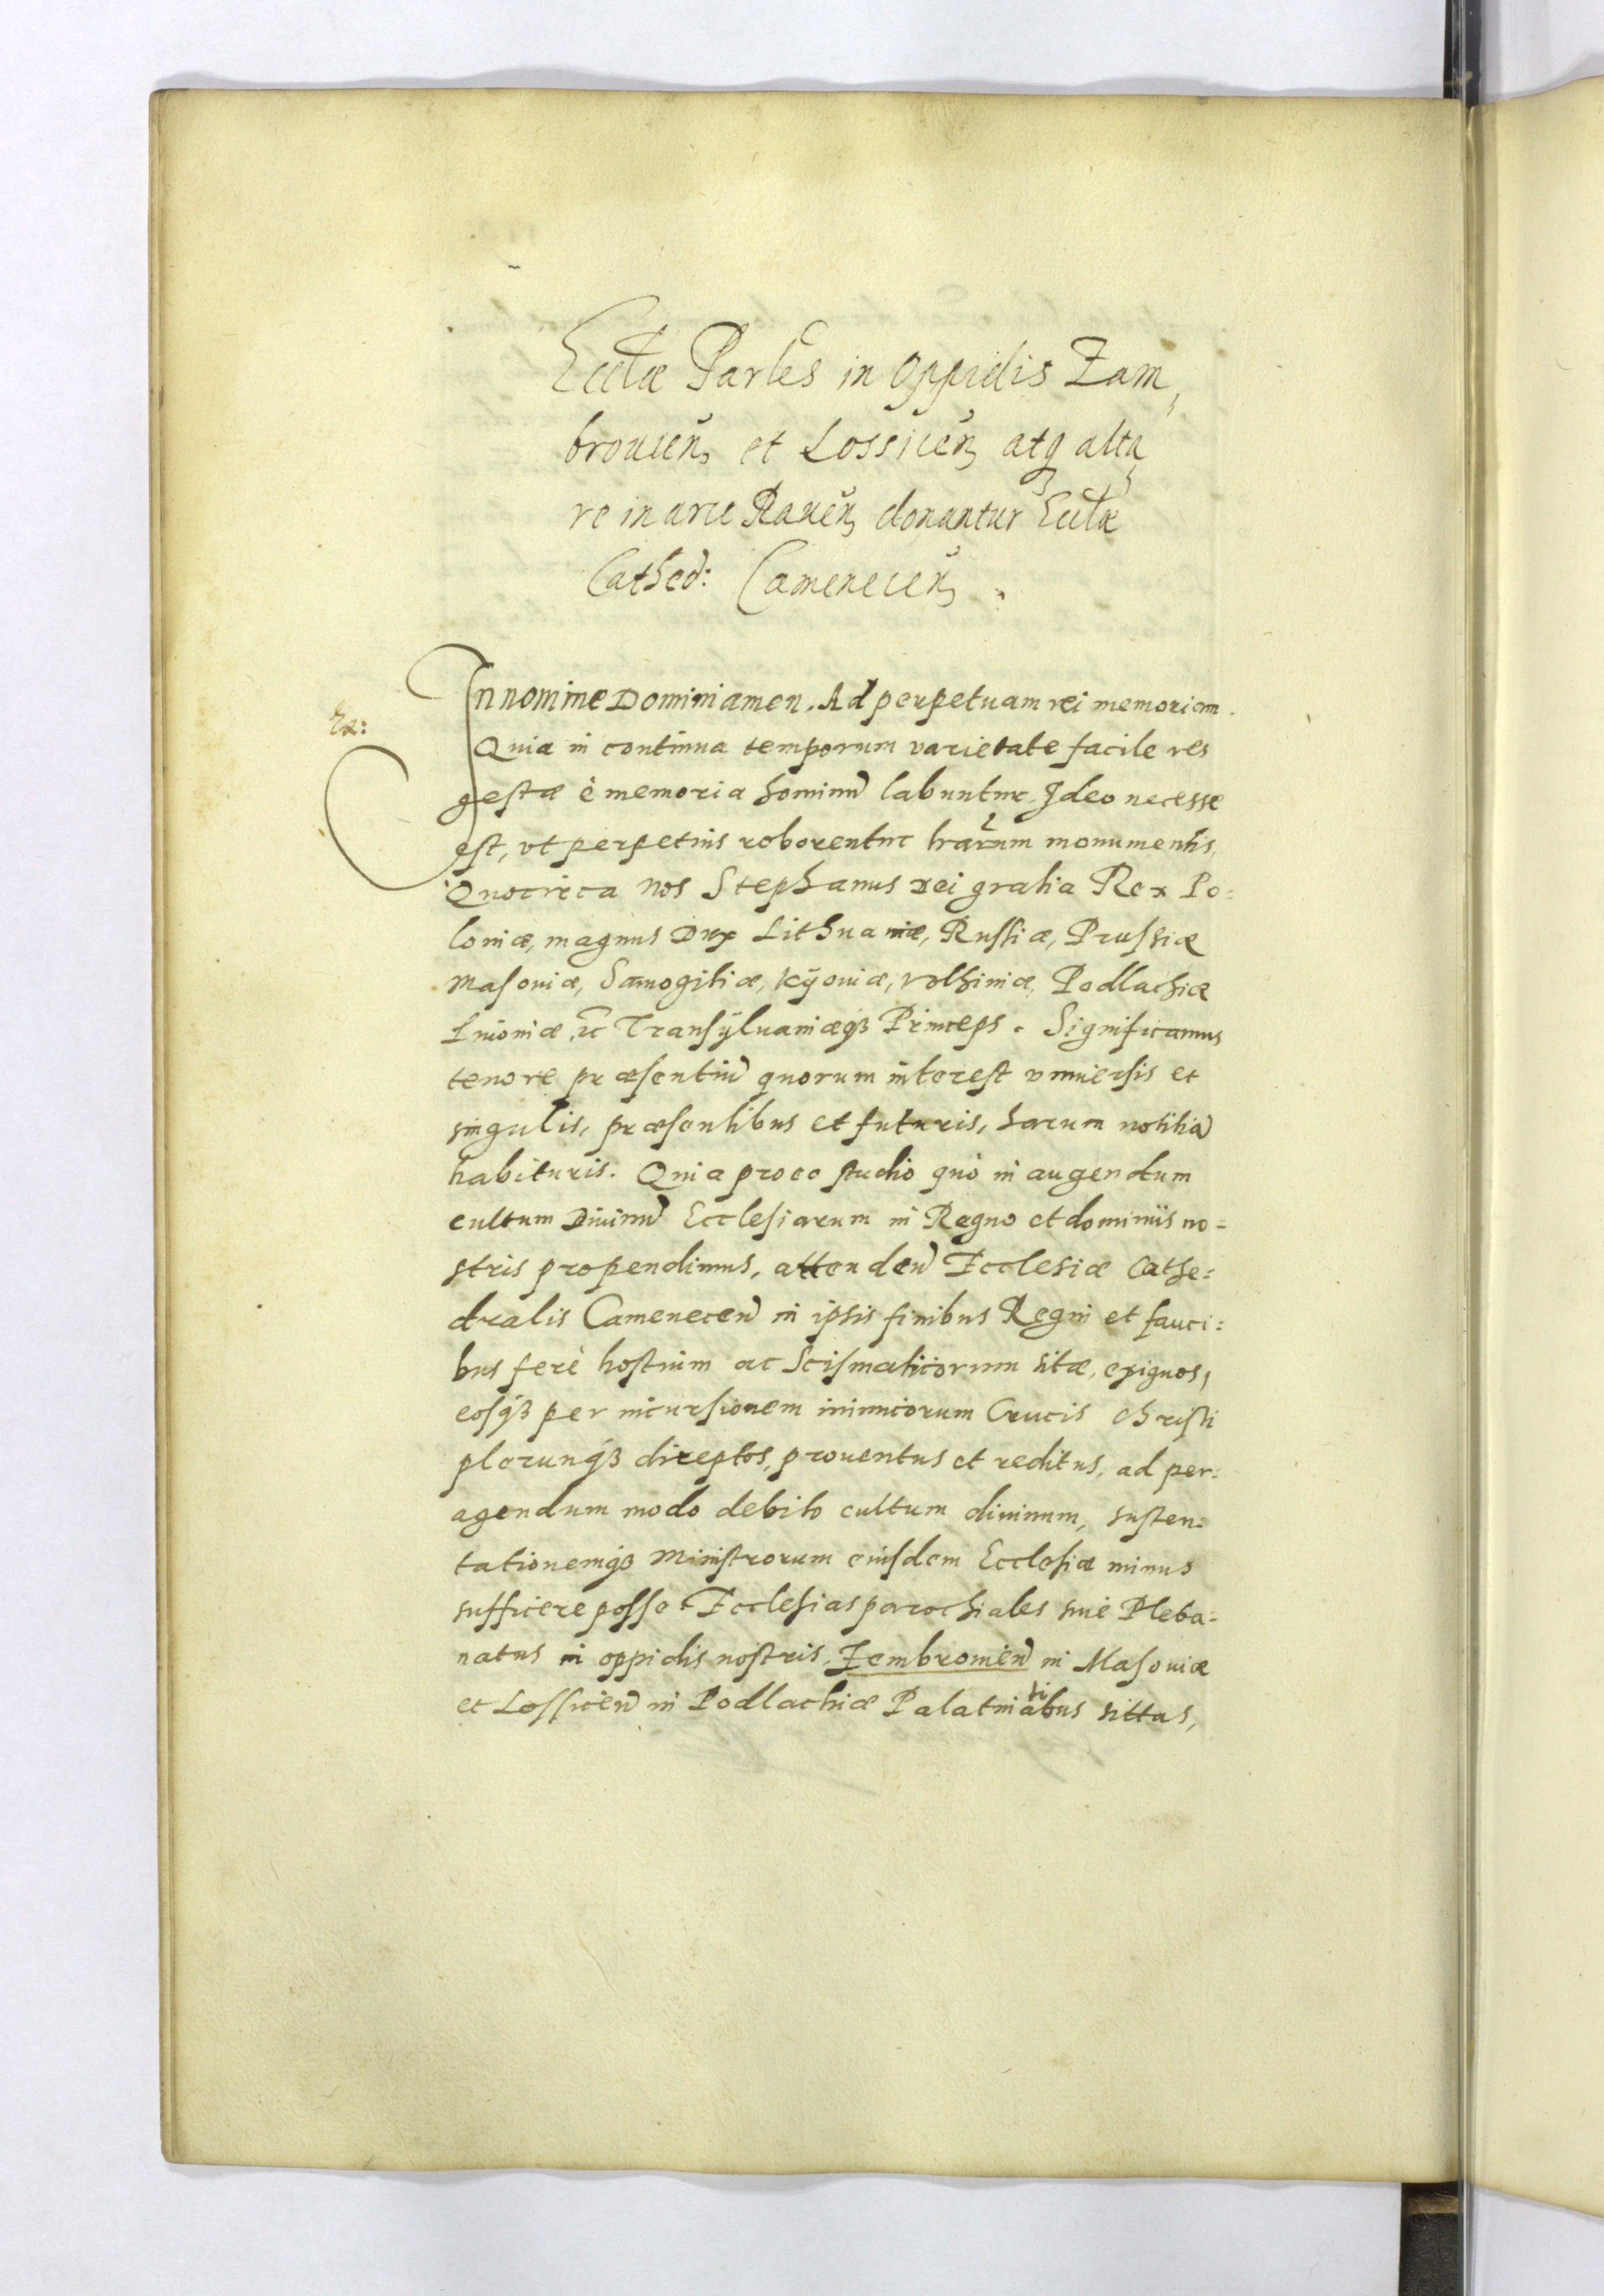 Eccłæ Parles in oppidis Zam,
brouień, et Lossiceń, atq alta,
re in arce Raueń, donantur Eccłæ
Cathed: Cameneceń,
In nomine Domini amen. Ad perpetuam rei memoriam.
Quia in continua temporum varietate facile res
gestæ è memoria hominũ labuntur. Ideo necesse
est, vt perpetuis roborentur lrãrum monumentis,
Quocirca nos Stephanus Dei gratia Rex Po=
loniæ, magnus Dux Lithuaniæ, Russiæ, Prussiæ
Masoviæ, Samogitiæ, Kÿoviæ, Volhiniæ, Podlachiæ
Livoniæ, ꝛc̃ Transÿluaniæqꝫ Princeps. Significamus
tenore præsentiũ quorum interest vniuersis et
singulis, præsentibus et futuris, harum notitiã
habituris. Quia pro eo studio quò in augendum
cultum Diuinũ Ecclesiarum in Regno et dominiis no=
stris propendimus, attendeñ Ecclesiæ Cathe=
dralis Cameneceñ in ipsis finibus Regni et fauci=
bus ferè hostium ac Scismaticorum sitæ, exiguos,
eosqꝫ per incursionem inimicorum Crucis Christi
plerunqꝫ direptos, prouentus et reditus, ad per=
agendum modo debito cultum diuinum, susten=
tationemqꝫ Ministrorum eiusdem Ecclesiæ minus
sufficere posse. Ecclesias parochiales siuè Pleba=
natus in oppidis nostris, Zembrouieñ in Masoviæ
et Lossiceñ in Podlachiæ Palatinatibus sittas,